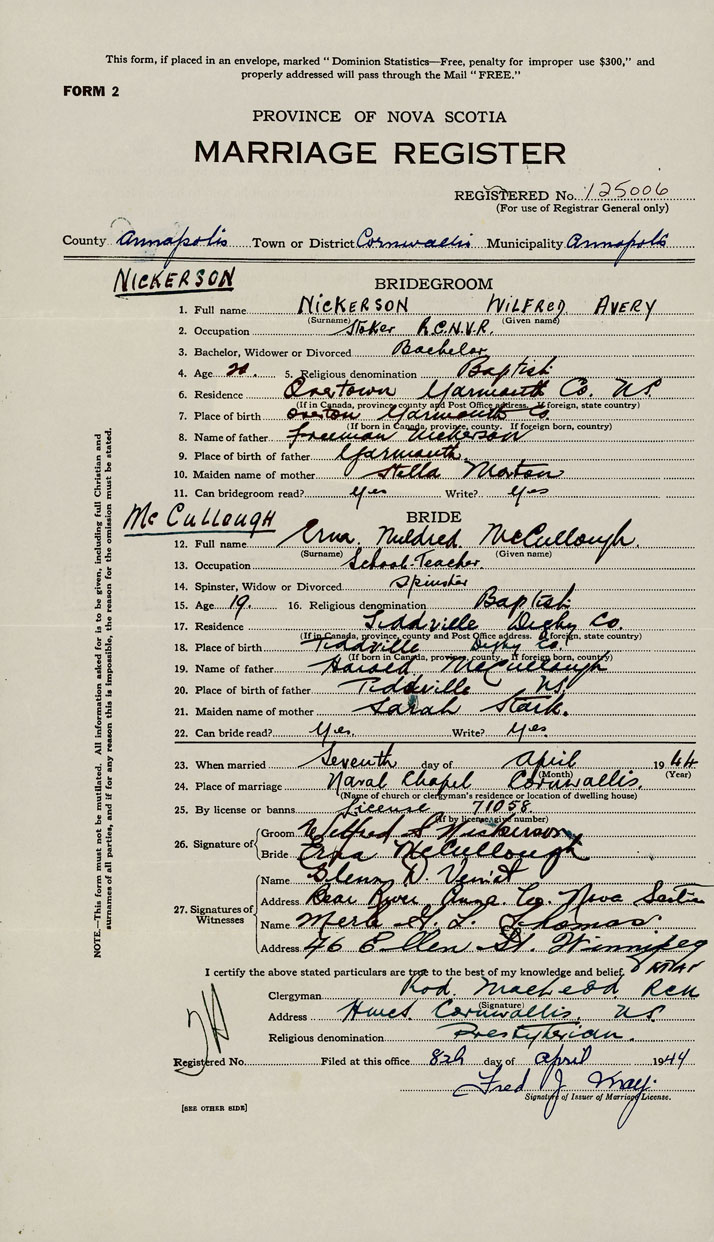 This form, if placed in an envelope, marked "Dominion Statistics—Free, penalty for improper use $300," and
properly addressed will pass through the Mail "FREE."
FORM 2
PROVINCE OF NOVA SCOTIA
MARRIAGE REGISTER
REGISTERED No. 125006
(For use of Registrar General only)
County Annapolis Town or District Cornwallis Municipality Annapolis
NICKERSON
BRIDEGROOM
1. Full name NICKERSON WILFRED AVERY
(Surname) (Given name)
2. Occupation Stoker R.C.N.V.R.
3. Bachelor, Widower or Divorced Bachelor
4. Age 20. 5. Religious denomination Baptist
6. Residence Overtown Yarmouth Co. N.S.
(If in Canada, province, county and Post Office address. If foreign, state country)
7. Place of birth overton Yarmouth Co.
(If born in Canada, province, county. If foreign born, country)
8. Name of father Freeman Nickerson
9. Place of birth of father Yarmouth
10. Maiden name of mother Stella Morton
11. Can bridegroom read? yes Write? yes
McCULLOUGH
BRIDE
12. Full name Erna Mildred McCullough.
(Surname) (Given name)
13. Occupation School-Teacher.
14. Spinster, Widow or Divorced Spinster
15. Age 19. 16. Religious denomination Baptist
17. Residence Tiddville Digby Co.
(If in Canada, province, county and Post Office address. If foreign, state country)
18. Place of birth Tiddville Digby Co.
(If born in Canada, province, county. If foreign born, country)
19. Name of father Harold McCullough
20. Place of birth of father Tiddville N.S.
21. Maiden name of mother Sarah Stark.
22. Can bride read? Yes. Write? Yes.
23. When married Seventh day of April 1944
(Month) (Year)
24. Place of marriage Naval Chapel Cornwallis.
(Name of church or clergyman's residence or location of dwelling house)
25. By license or banns License 71058
(If by license, give number)
26. Signature of Groom Wilfred A Nickerson
Bride Erna McCullough
27. Signatures of Witnesses
Name Glenn D.
Address Bear River Anna. Co. Nova Scotia
Name Merle G. L. Thomas.
Address 46 Ellen St. Winnipeg
I certify the above stated particulars are true to the best of my knowledge and belief.
Clergyman Rod. MacLeod RCN
(Signature)
Address Hmcs. Cornwallis, N.S.
Religious denomination Presbyterian.
Registered No. Filed at this office 8th day of april 1944
Fred J.
Signature of Issuer of Marriage License.
[SEE OTHER SIDE]
NOTE.—This form must not be mutilated. All information asked for is to be given, including full Christian and
surnames of all parties, and if for any reason this is impossible, the reason for the omission must be stated.